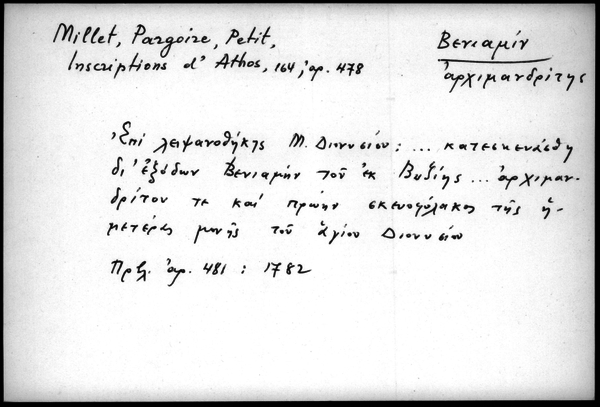 Millet, Pargoire, Petit,
Inscriptions d'Athos, 164, ἀρ. 478
Βενιαμίν
ἀρχιμανδρίτης
Ἐπὶ λειψανοθήκης Μ. Διονυσίου: ... κατεσκευάσθη
δι' ἐξόδων Βενιαμὴν τοῦ ἐκ Βυζίης ... ἀρχιμαν-
δρίτου τε καὶ πρώην σκευοφύλακος τῆς ἡ-
μετέρας μονῆς τοῦ ἁγίου Διονυσίου
Πρβλ. ἀρ. 481 : 1782